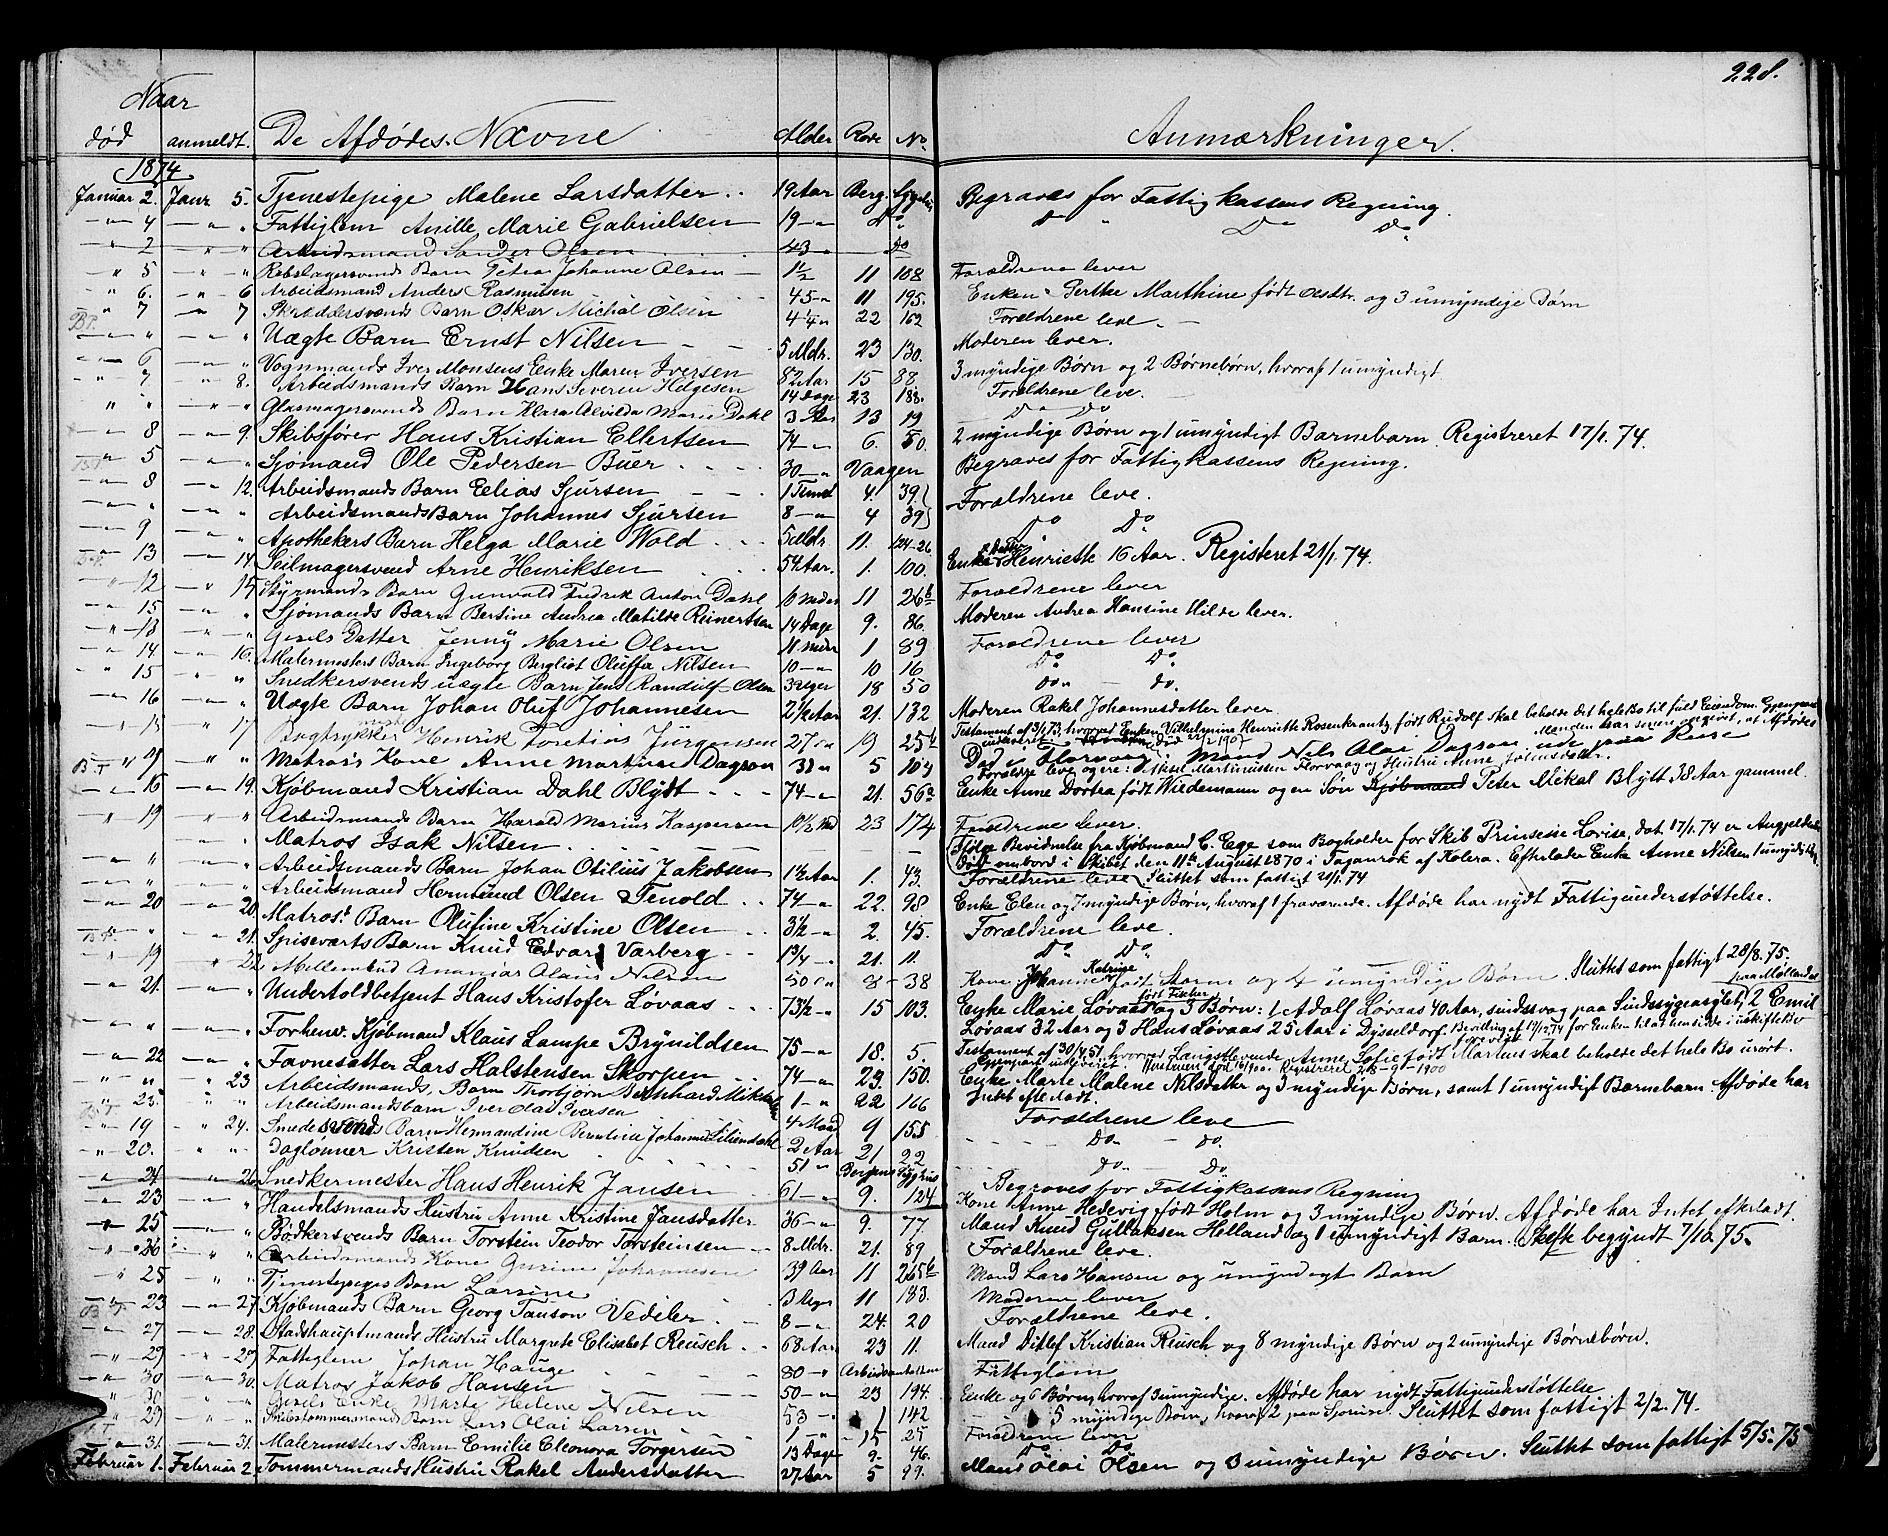 228.
Naar
død anmeldt. De Afdødes Navne Alder Rode No Anmærkninger.
1874
Januar 2. Janr 5. Tjenestepige Malene Larsdatter 19 Aar Berg. Sygehus Begraves for Fattigkassens Regning.
" 4 " " Fattiglem Anille Marie Gabrielsen 19 " Do Do " Do Do
" 2 " " Arbeidsmand Sander Olsen 43 " Do
" 5 " " Rebslagersvends Barn Petra Johanne Olsen 1 1/2 11 108 Forældrene lever
" 6. " 6 Arbeidsmand Anders Rasmusen 45 " 11 195. Enken Perthe Marthine født Olsdtr. og 3 umyndige Børn
" 7 " 7 Skræddersvends Barn Oskar Michal Olsen 4 1/4 " 22 162 Forældrene leve.
" " " " Uægte Barn Ernst Nilsen 5 Mdr. 23 130. Moderen lever.
" 6 " " Vognmands Iver Monsens Enke Maren Iversen 82 Aar 15 88. 3 myndige Børn og 2 Børnebørn, hvoraf 1 umyndigt
" 7 " 8. Arbeidsmands Barn Hans Severin Helgesen 14 Dage 23 188. Forældrene leve.
" " " " Glasmagersvends Barn Klara Alvilda Marie Dahl 3 13 19 Do Do
" 8 " 9. Skibsfører Hans Kristian Ellertsen 74 " 6. 50. 2 myndige Børn og 1 umyndigt Barnebarn. Registreret 17/1. 74.
" 5 " " Sjømand Ole Pedersen Buer 30 " Vaagen Begraves for Fattigkassens Regning.
" 8 " 12. Arbeidsmands Barn Elias Sjursen 1 Time 4. 39 Forældrene leve.
" " " " Arbeidsmands Barn Johannes Sjursen 8 " 4 39 Do Do
" 9 " " Apothekers Barn Helga Marie Wold 5 Mdr. 11. 124-26.
" 13 " 14. Seilmagersvend Arne Henriksen 54 Aar. 1. 100. Enke Henriette 16 Aar. Registeret 21/1. 74.
" 12 " 15. Styrmands Barn Gunvald Fredrik Anton Dahl 10 Mdr 11 26b Forældrene lever
" 15 " " Sjømands Barn Bertine Andrea Matilde Reinertsen 14 Dage 9. 86. Moderen Andrea Hansine Hilde lever.
" 13 " " Gisels Datter Jenny Marie Olsen 11 mdr 1 89 Forældrene lever
" 14 " 16. Malermesters Barn Ingeborg Bergliot Oluffa Nilsen 10 " 10 16 Do Do
" 15 " " Snedkersvends uægte Barn Jens Randulf Olsen 3 Uger 18 50 Do " Do.
" 16 " " Uægte Barn Johan Oluf Johannesen 2 1/2 Aar 21. 132 Moderen Rakel Johannesdatter lever.
" 15 " 17 Bogtrykker Henrik Jürgensen 27 " 19 25b Testament af 3/1 73, hvorved Enken Vilhelmine Henriette Rosenkrantz født Rudolf skal beholde det hele Bo til fuld Eiendom.
" 9 " " Matros's Kone Anne Martine Dagson 38 " 5 104 Mand Nils Olai Dagson ude paa Reise
" 16 " 19. Kjøbmand Kristian Dahl Blydt 74 " 21. 56a Enke Anne Dortea født Wiedemann og en Søn Kjøbmand Peter Mikal Blytt 38 Aar gammel.
" 19 " " Arbeidsmands Barn Harald Marius Kaspersen 10 1/2 Md 23 174 Forældrene lever.
Matros Isak Nilsen Ifølge Bevidnelse fra Kjøbmand C. Ege som Bogholder for Skib Prinsesse Lovise, dat 17/1.74 er Angjeldende
Død ombord i Skibet den 11te August 1870 i Taganrok af Kolera. Efterlader Enke Anne Nilsen 1 umyndig
" " " " Arbeidsmands Barn Johan Otilius Jakobsen 1 1/2 Aar 1. 43. Forældrene leve. Sluttet som fattigt 21/1. 74
" " " " Arbeidsmand Hermund Olsen Tenold 74 " 22. 98 Enke Elen og 7 myndige Børn, hvoraf 1 fraværende. Afdøde har nydt Fattigunderstøttelse.
" 20 " 20. Matros's Barn Olufine Kristine Olsen 3 1/2 " 2. 45. Forældrene leve.
" " " 21. Spiseværts Barn Knud Edvard Varberg 1 3/4 " 21. 11. Do Do
" 19 " 22 Mellembud Ananias Olaus Nilsen 50 " 8 38 Kone Johanne Katrine født Storm og 4 umyndige Børn. Sluttet som fattigt 28/8. 75.
" 21. " " Undertoldbetjent Hans Kristofer Løvaas 73 1/2 " 15 103. Enke Marie Løvaas født Fischer og 3 Børn: 1 Adolf Løvaas 40 Aar, sindssvag paa Sindssygeasylet paa Møllendal, 2 Emil
Løvaas 32 Aar og 3 Hans Løvaas 25 Aar i Dysseldorf. Bevilling af 17/12 74 for Enken til at hensidde i uskiftet Bo
" " " " Forhenv. Kjøbmand Klaus Lampe Brynildsen 75 " 18. 5. Testament af 30/4.51, hvorved Længstlevende, Anne Sofie født Martens skal beholde det hele Bo urørt.
" 22 " " Favnesætter Lars Halstensen Skorpen 74 " 23. 150. Enke Marte Malene Nilsdatter og 3 myndige Børn, samt 1 umyndigt Barnebarn Afdøde har
Intet efterladt.
" " " 23 Arbeidsmands Barn Thorbjørn Bernhard 1 " 22 166 Forældrene leve
" 23. " " Arbeidsmandsbarn Iver Olai Iversen 4 Maad 9 155 Do Do
" 19 " 24. Smedesvends Barn Hermandine Berntine Johanne Liliendahl 2 Aar 21 22 Do Do.
" 20. " " Dagløner Kristen Knudsen 51 " Bergens Sygehus Begraves for Fattigkassens Regning
" 24 " 26. Snedkermester Hans Henrik Jansen 61 " 9. 124 Kone Anne Hedevig født Holm og 3 myndige Børn. Afdøde har Intet efterladt.
" 23 " " Handelsmands Hustru Anne Kristine Jansdatter 36 " 9. 77 Mand Knud Gullaksen Helland og 1 umyndigt Barn. Skifte begyndt 7/10. 75.
" 25 " " Bødkersvends Barn Torstein Teodor Torsteinsen 8 Mdr. 21. 89 Forældrene leve.
" 26 " " Arbeidsmands Kone Gurine Johannesen 39 Aar 11 265b Mand Lars Hansen og umyndigt Barn
" 25 " " Tjenestepiges Barn Larsine 3 Uger 11 183. Moderen lever
" 23 " 27. Kjøbmands Barn Georg Tauson Vedeler 8 " 24. 20 Forældrene leve.
" 27 " 28. Stadshauptmands Hustru Margrete Elisabet Reusch 68 Aar 23 11. Mand Ditlef Kristian Reusch og 8 myndige Børn og 2 umyndige Børnebørn.
" 29 " 29 Fattiglem Johan Hauge 80 " Arbeidsanstalten Fattiglem
" 30 " 30. Matros Jakob Hansen 50 " 23 194. Enke og 6 Børn, hvoraf 3 umyndige. Afdøde har nydt Fattigunderstøttelse
" 30 " " Gisels Enke Marte Helene Nilsen 53 " 1 142 5 myndige Børn, hvoraf 2 paa Sjøreise. Sluttet som fattigt 2/2. 74.
" 29 " " Skibstømmermands Barn Lars Olai Larsen 1 " 15 25 Forældrene lever
" 31. " 31. Malermesters Barn Emilie Eleonora Torgersen 13 Dage 9. 46. Do Do
Februar 1. Februar 2. Tømmermands Hustru Rakel Andersdatter 27 Aar 5 99. Mand Olai Olsen og 3 umyndige Børn. Sluttet som fattigt 5/5. 75